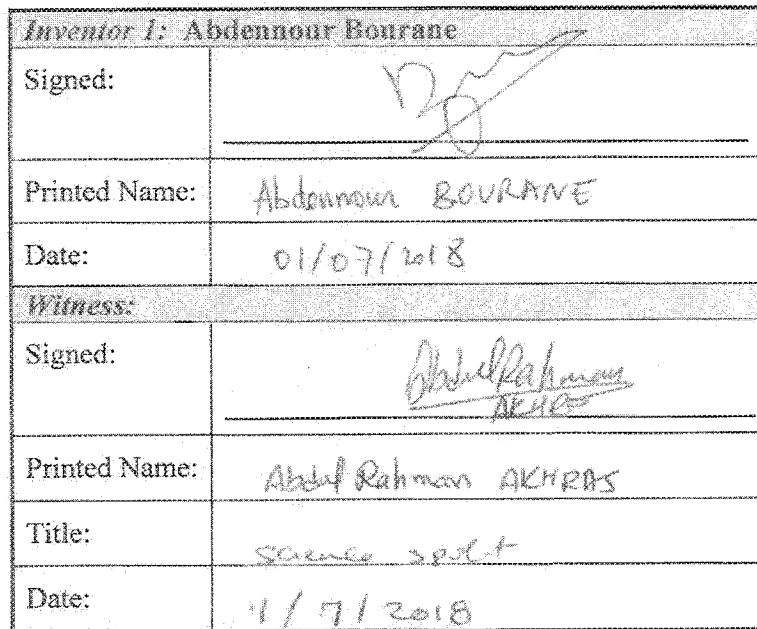 Inventor 1: Abdennour Bourane
Signed:
Printed Name: Abdennour BOURANE
Date: 01/07/2018
Witness:
Signed: AbdulRahman
AKHRAS
Printed Name: Abdul Rahman AKHRAS
Title: Science
Date: 1/7/2018